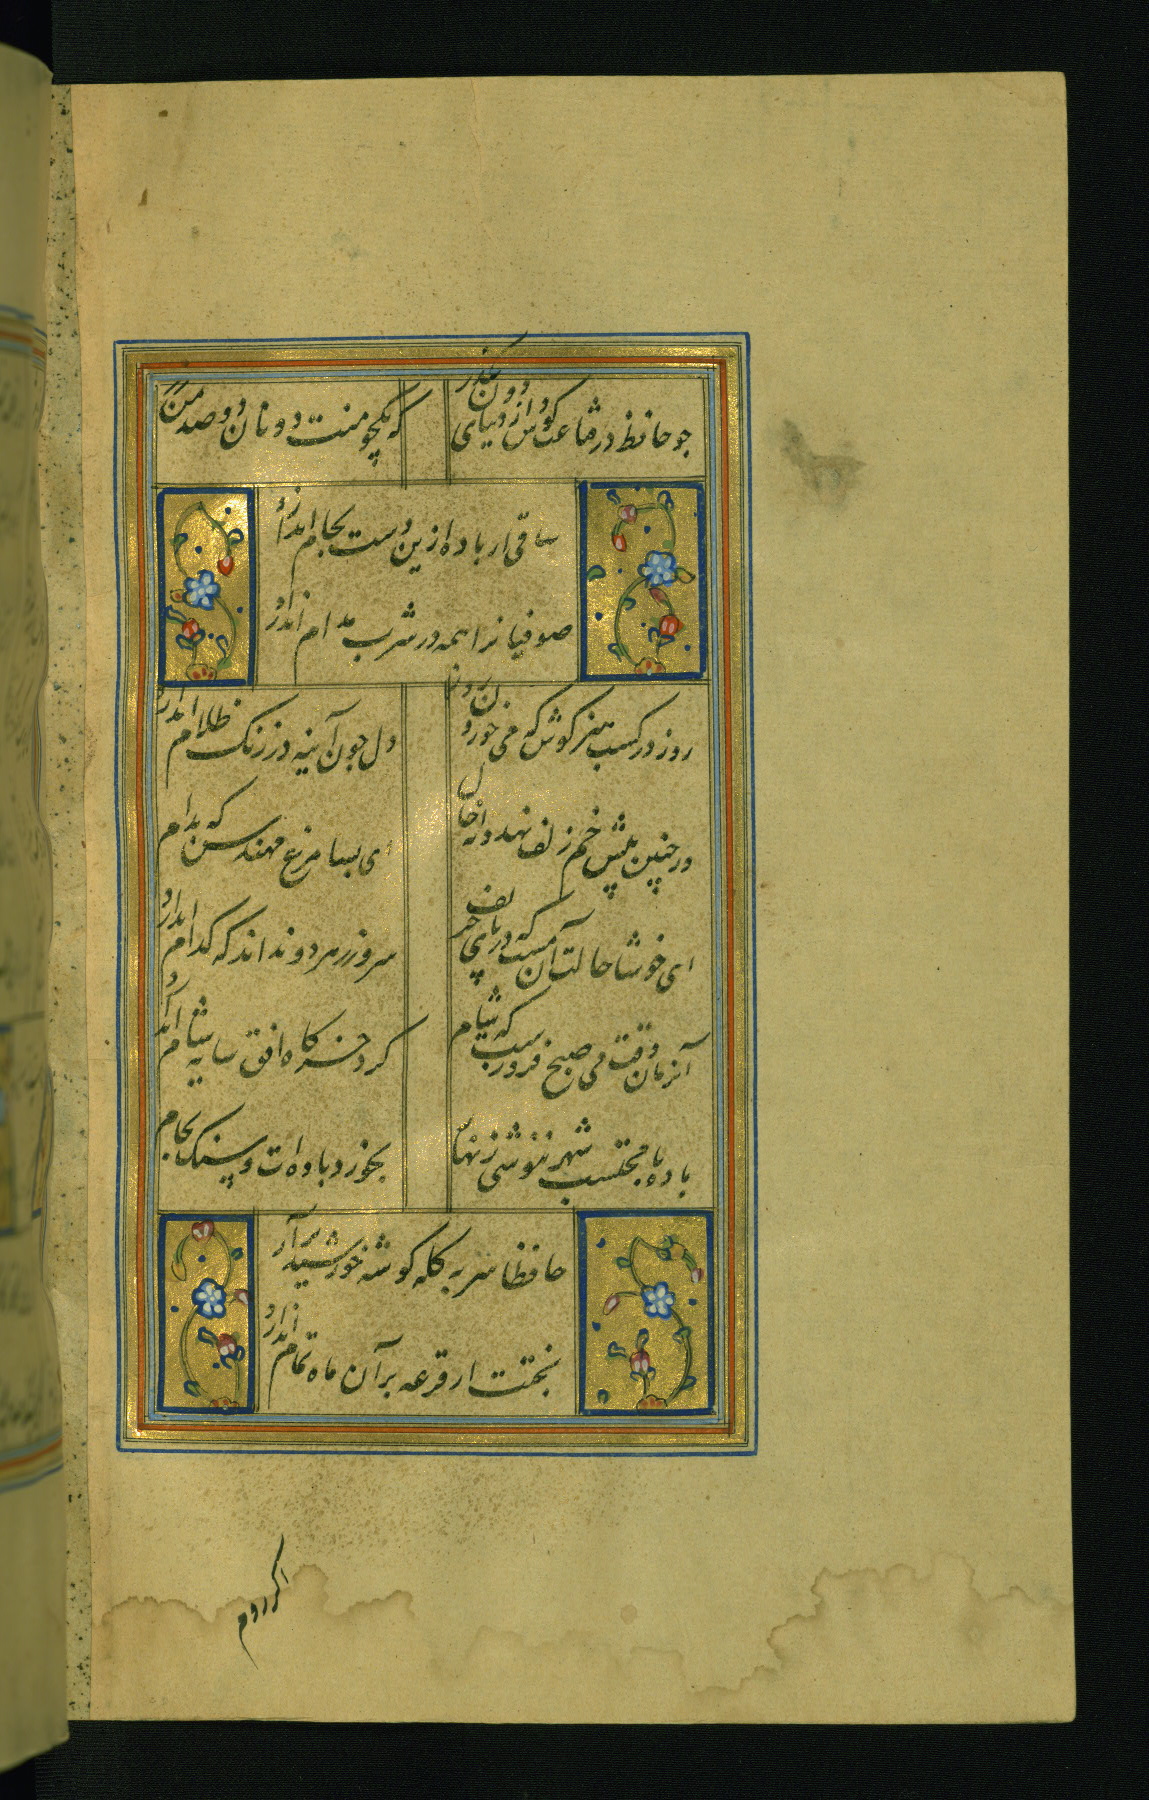 جو حافظ در قناعت کوش و از دنیای دون بگذر
که یکجو منت دونان دو صد من زر
ساقی ار باده ازین دست بجام اندازد
صوفیانرا همه در شرب مدام اندازد
روز در کسب هنر کوش که می خوردن روز
دل جون آینه در زنک ظلام اندازد
ور چنین پیش خم زلف نهد دانه خال
ای بسا مرغ که بدام
ای خوشا حالت آن مست که در پای حریف
سر و زر هر دو نداند که کدام اندازد
آنزمان وقت می صبح فروغست که شام
کرد خرکاه افق سایه شام اندازد
باده با محتسب شهر ننوشی زنهار
بخورد باده ات و سنک بجام
حافظا سر به کله کوشه خورشید برآر
بختت ار قرعه بر آن ماه تمام اندازد
اکر روم